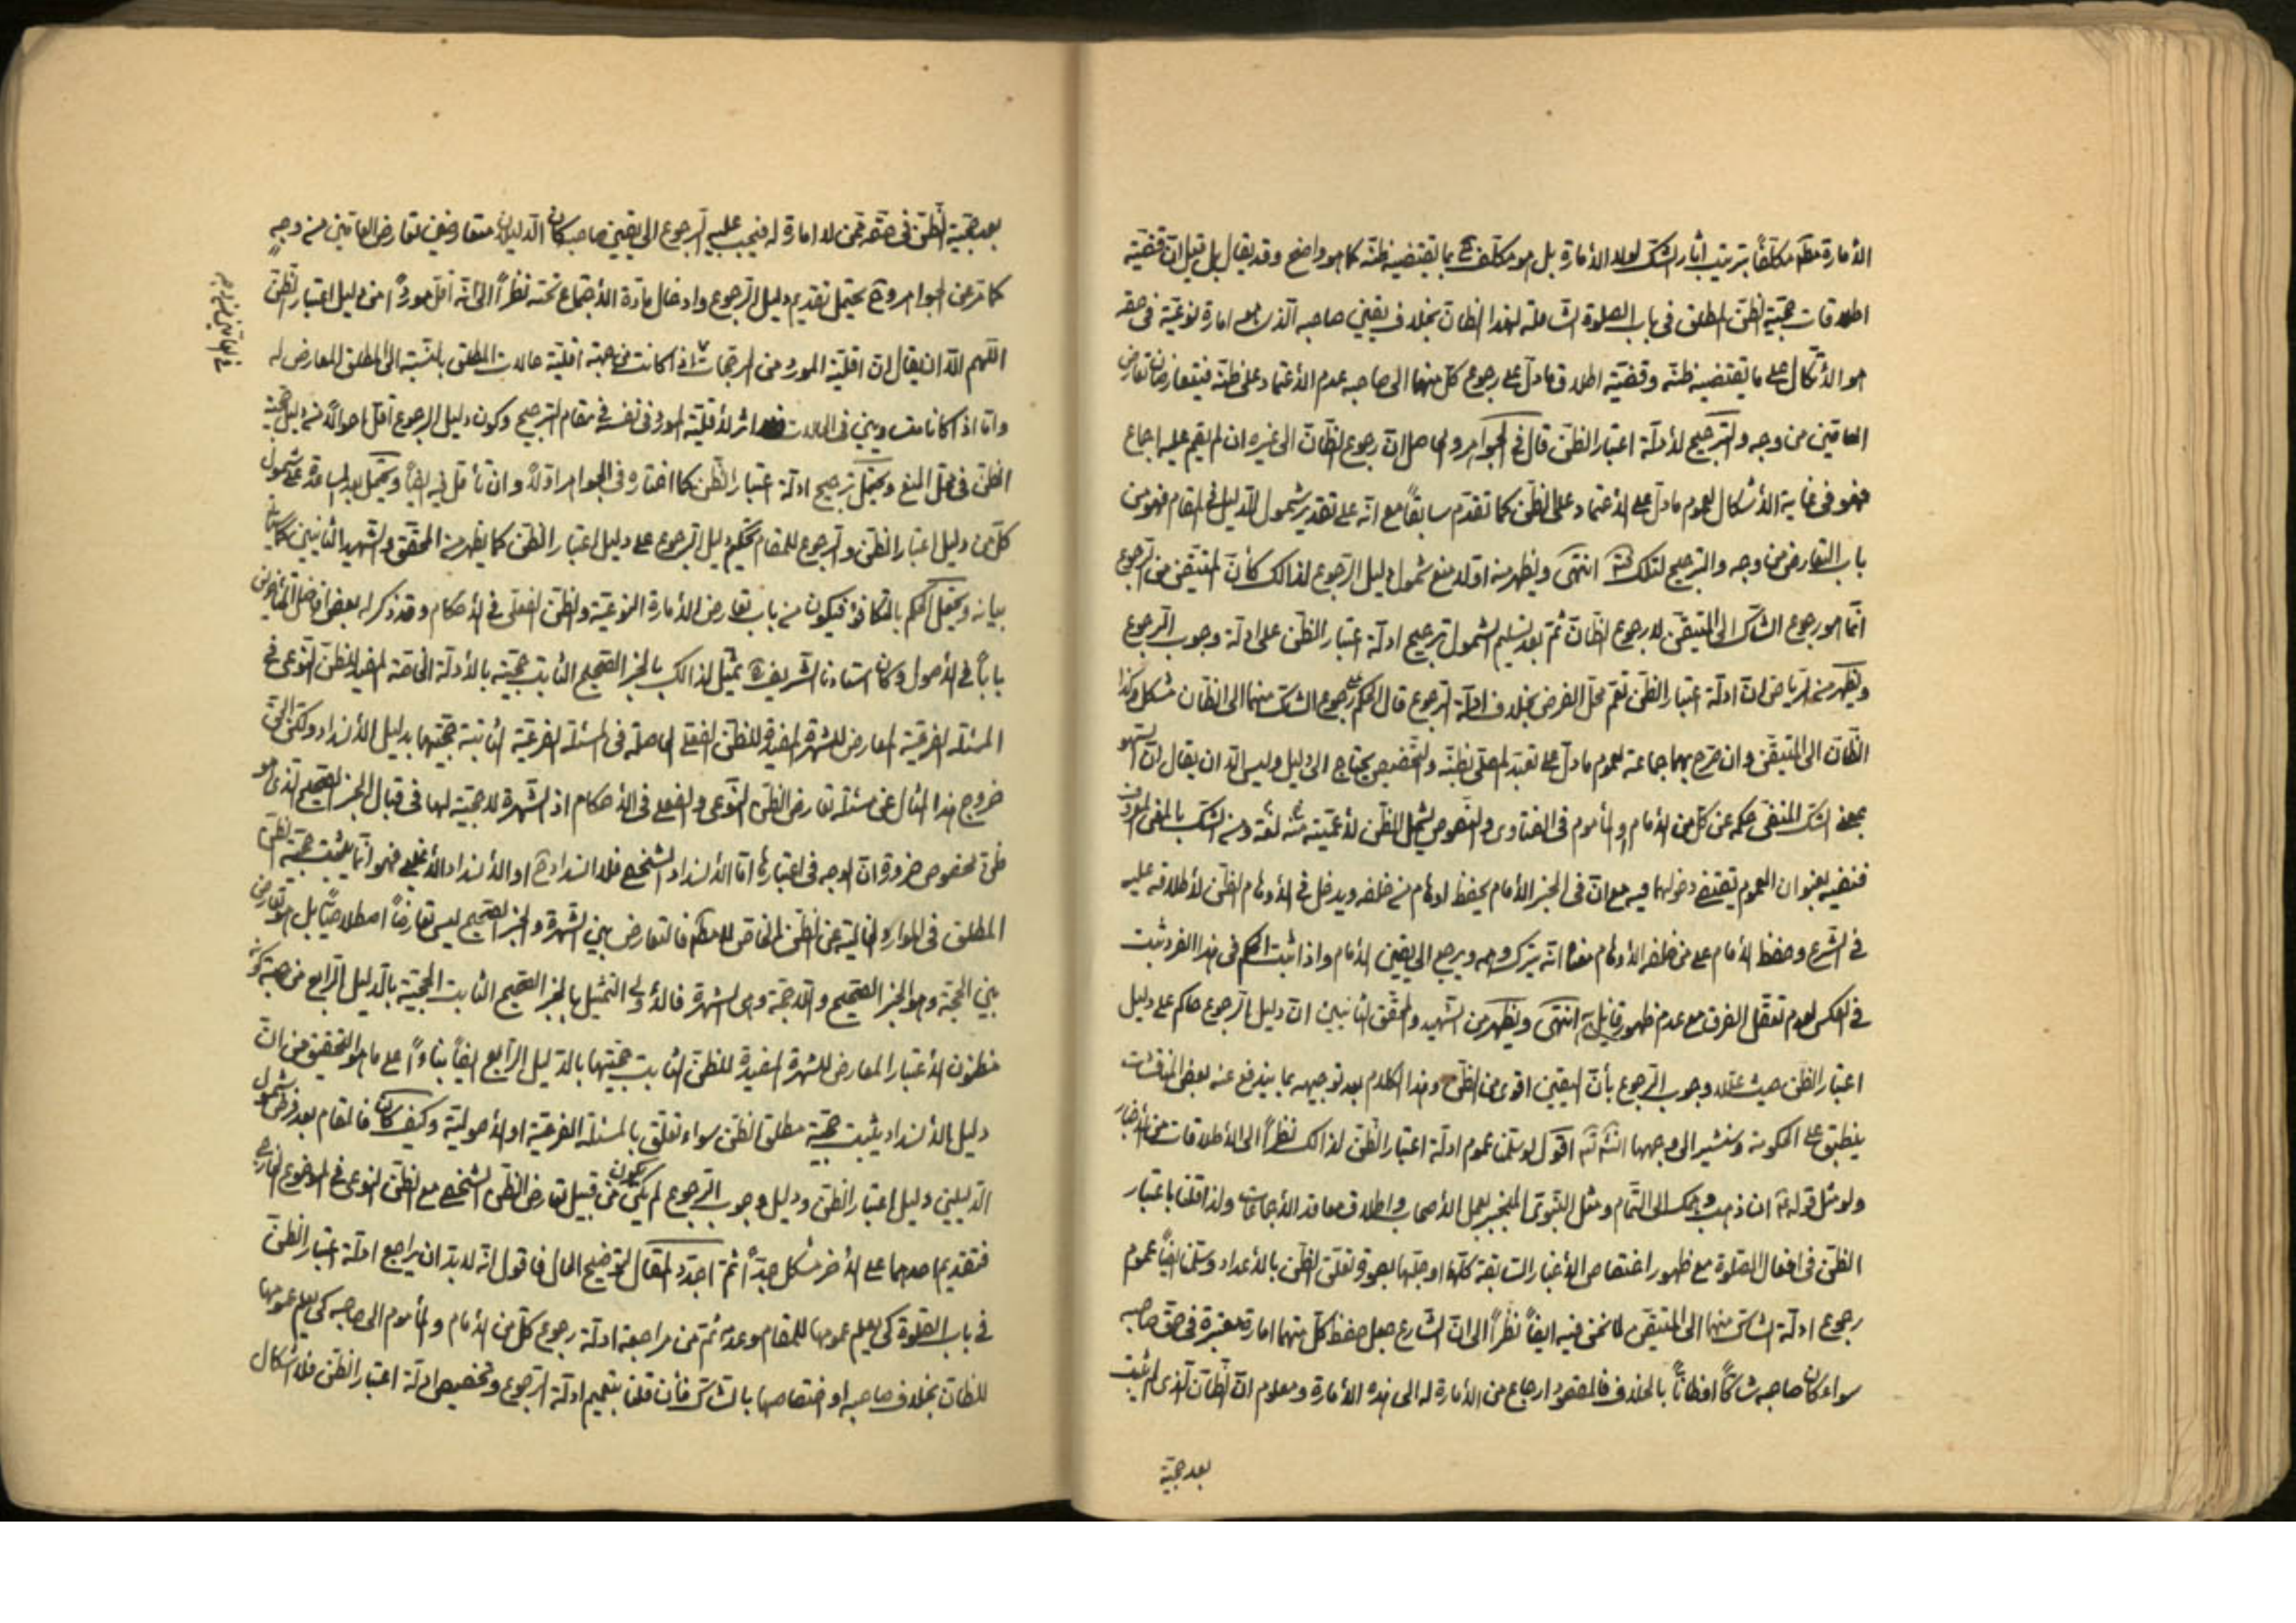 الأمارة مكلّفاً بترتيب آثار الشك لولا الأمارة بل هو مكلّف بما يقتضيه ظنّه كما هو واضح وقد يقال بل قيل انّ قضيّة
اطلاقات حجّيّة الظنّ المطلق في باب الصلوة الشاملة لهذا الظانّ بخلاف يقين صاحبه الذي امارة نوعيّة في حقّه
هو الاتّكال على ما يقتضيه ظنّه وقضيّة اطلاق ما دلّ على رجوع كلّ منهما الى صاحبه عدم الأعتماد على ظنّه فيتعارضان تعارض
العامّين من وجه والترجيح لأدلّة اعتبار الظنّ قال في الجواهر والحاصل انّ رجوع الظانّ الى غيره ان لم يقم عليه اجماع
فهو في غاية الأشكال لعموم ما دلّ على الأعتماد على الظنّ كما تقدّم سابقاً مع انّه على تقدير شمول الدليل في المقام فهو من
باب التعارض من وجه والترجيح لتلك انتهى ويظهر منه اولا منع شمول دليل الرجوع لذالك كأنّ المتيقّن من الرجوع
انّما هو رجوع الشاك الى المتيقّن لا رجوع الظانّ ثمّ بعد تسليم الشمول ترجيح ادلّة اعتبار الظنّ على ادلّة وجوب الرجوع
ويظهر من الرياض انّ ادلّة اعتبار الظنّ تعمّ محلّ الفرض بخلاف ادلّة الرجوع قال الحكم رجوع الشاكّ منهما الى الظانّ مشكل وكذا
الظانّ الى المتيقّن وان صرّح بهما جماعة لعموم ما دلّ على تعبّد المصلّي بظنّه والتخصيص يحتاج الى دليل وليس الّا ان يقال انّ السهو
بمعنى الشك المنفي حكمه عن كلّ من الأمام والمأموم في الفتاوى والنصوص يشمل الظنّ لأعمّيّته منه لغة ومن الشك بالمعنى المعروف
فنفيه بعنوان العموم يقتضي دخولهما فيه مع انّ في الخبر الأمام يحفظ اوهام من خلفه ويدخل في الأوهام الظنّ لأطلاقه عليه
في الشرع وحفظ الأمام على من خلفه الأوهام معناه انّه يترك وهمه ويرجع الى يقين الأمام واذا ثبت الحكم في هذا الفرد ثبت
في العكس لعدم تعقّل الفرق مع عدم ظهور قائل به انتهى ويظهر من الشهيد والمحقّق الثانيين انّ دليل الرجوع حاكم على دليل
اعتبار الظنّ حيث علّلا وجوب الرجوع بأنّ اليقين اقوى من الظنّ وهذا الكلام بعد توجيهه بما يندفع عنه بعض المناقشات
ينطبق على الحكومة وسنشير الى توجيهها اقول لو سلّمنا عموم ادلّة اعتبار الظنّ لذالك نظراً الى الأطلاقات من الأخبار
ولو مثل قوله ان ذهب وهمك الى التّمام ومثل النّبوي المنجبر بعمل الأصحاب واطلاق معاقد الأجماعات ولذا قلنا باعتبار
الظنّ في افعال الصلوة مع ظهور اختصاص الأخبار السابقة كلّها او جلّها بصورة تعلّق الظنّ بالأعداد وسلّمنا ايضاً عموم
رجوع ادلّة الشاكّ منهما الى المتيقّن لما نحن فيه ايضاً نظراً الى انّ الشارع جعل حفظ كلّ منهما امارة معتبرة في حقّ صاحبه
سواء كان صاحبه شاكّاً او ظانّاً بالخلاف فالمقصود ارجاع من الأمارة له الى هذه الأمارة ومعلوم انّ الظانّ الذي لم يثبت
بعد حجيّة
بعد حجيّة الظنّ في حقّه فمن لا امارة له فيجب عليه الرجوع الى يقين صاحبه كان الدليلان متعارضين تعارض العامّين من وجهٍ
كما عن الجواهر و يحتمل تقديم دليل الرجوع وادخال مادّة الأجتماع تحته نظراً الى انّه اقلّ مورداً من دليل اعتبار الظنّ
اللهم الّا ان يقال انّ اقلّيّة المورد من المرجّحات اذا كانت من جهة اقلّيّة حالات المطلق بالنسبة الى المطلق المعارض له
وامّا اذا كانا متساويين في الحالات فلا اثر لأقلّيّة المورد في نفسه في مقام الترجيح وكون دليل الرجوع اقلّ احوالاً من دليل حجيّة
الظنّ في محلّ المنع ويحتمل ترجيح ادلّة اعتبار الظنّ كما اختاره في الجواهر اوّلاً وان تأمّل فيه ايضاً ويحتمل بعد المساعدة على شمول
كلّ من دليل اعتبار الظنّ والرجوع للمقام تحكيم دليل الرجوع على دليل اعتبار الظنّ كما يظهر من المحقّق والشهيد الثانيين كما سيأتي
بيانه ويحتمل الحكم بالتكافؤ فيكون من باب تعارض الأمارة النوعيّة والظنّ الفعلي في الأحكام وقد ذكر له بعض افاضل المتأخرين
باباً في الأصول وكان استادنا الشريف يمثّل لذالك بالخبر الصحيح الثابت حجّيّته بالأدلّة الخاصّة المفيد للظنّ النوعي في
المسئلة الفرعيّة المعارض للشهرة المفيدة للظنّ الفعلي الحاصلة في المسئلة الفرعيّة الثابتة حجّيّتها بدليل الأنسداد ولكنّ الحقّ
خروج هذا المثال عن مسئلة تعارض الظنّ النوعي والفعلي في الأحكام اذ الشهرة لا حجّيّة لها في قبال الخبر الصحيح الذي هو
ظنّ مخصوص ضرورة انّ الوجه في اعتبارها امّا الأنسداد الشخصي فلا انسداد او الأنسداد الأغلبي فهو انّما يثبت حجّيّة الظنّ
المطلق في الموارد الخالية عن الظنّ الخاصّ فالتعارض بين الشهرة والخبر الصحيح ليس تعارضاً اصطلاحيّاً بل هو تعارض
بين الحجّة وهو الخبر الصحيح واللاحجّة وهي الشهرة فالأولى التمثيل بالخبر الصحيح الثابت الحجّيّة بالدليل الرابع من جهة كونه
مظنون الأعتبار المعارض للشهرة المفيدة للظنّ الثابت حجّيّتها بالدليل الرابع ايضاً بناءً على ما هو التحقيق من انّ
دليل الأنسداد يثبت حجّيّة مطلق الظنّ سواء تعلّق بالمسئلة الفرعيّة او الأصوليّة وكيف كان فالمقام بعد فرض شمول
الدليلين دليل اعتبار الظنّ ودليل وجوب الرجوع لم يكن يكون من قبيل تعارض الظنّ الشخصي مع الظنّ النوعي في الموضوع الخارجي
فتقديم احدهما على الأخر مشكل جدّاً ثمّ اجدّد المقال لتوضيح الحال فاقول انّه لا بدّ ان يراجع ادلّة اعتبار الظنّ
في باب الصلوة كي يعلم عمومها للمقام وعدمه ثمّ من مراجعة ادلّة رجوع كلّ من الأمام والمأموم الى صاحبه كي يعلم عمومها
للظانّ بخلاف صاحبه او اختصاصها بالشاكّ فأن قلنا بتعميم ادلّة الرجوع وتخصيص ادلّة اعتبار الظنّ فلا اشكال